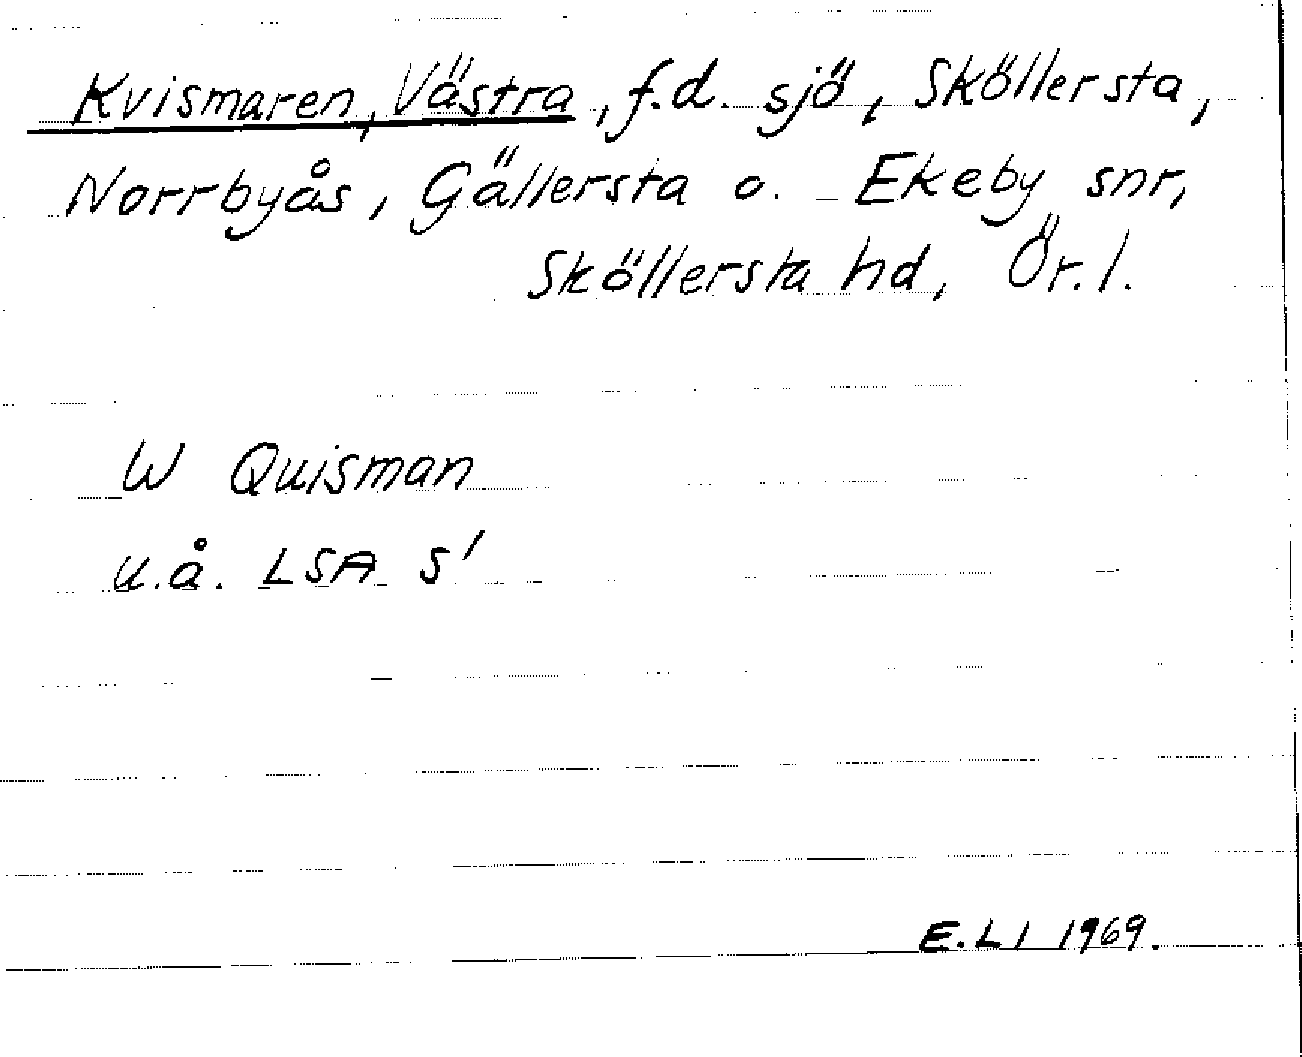 Kvismaren, Västra, f.d. sjö, Sköllersta,
Norrbyås, Gällersta o. Ekeby snr,
Sköllersta hd, Ör. l.
W Quisman
u.å. LSA S'
E.LI 1969.